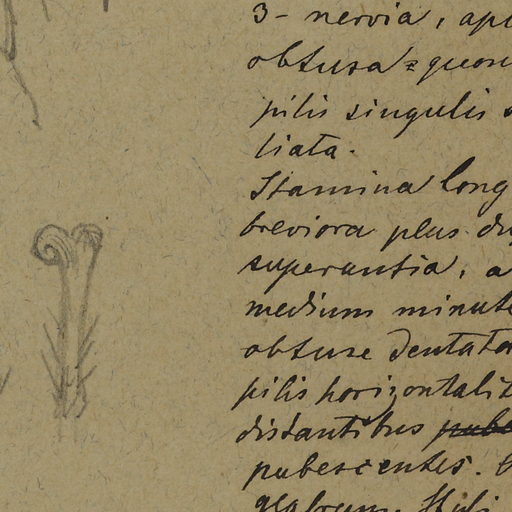 3-nervia, api
obtusa
pilis singulis
liata.
Stamina long
breviora plus du
superantia, a
medium minute
obtuse dentato
pilis horizontalit
distantibus pube
pubescentes.
glabrum. Styli